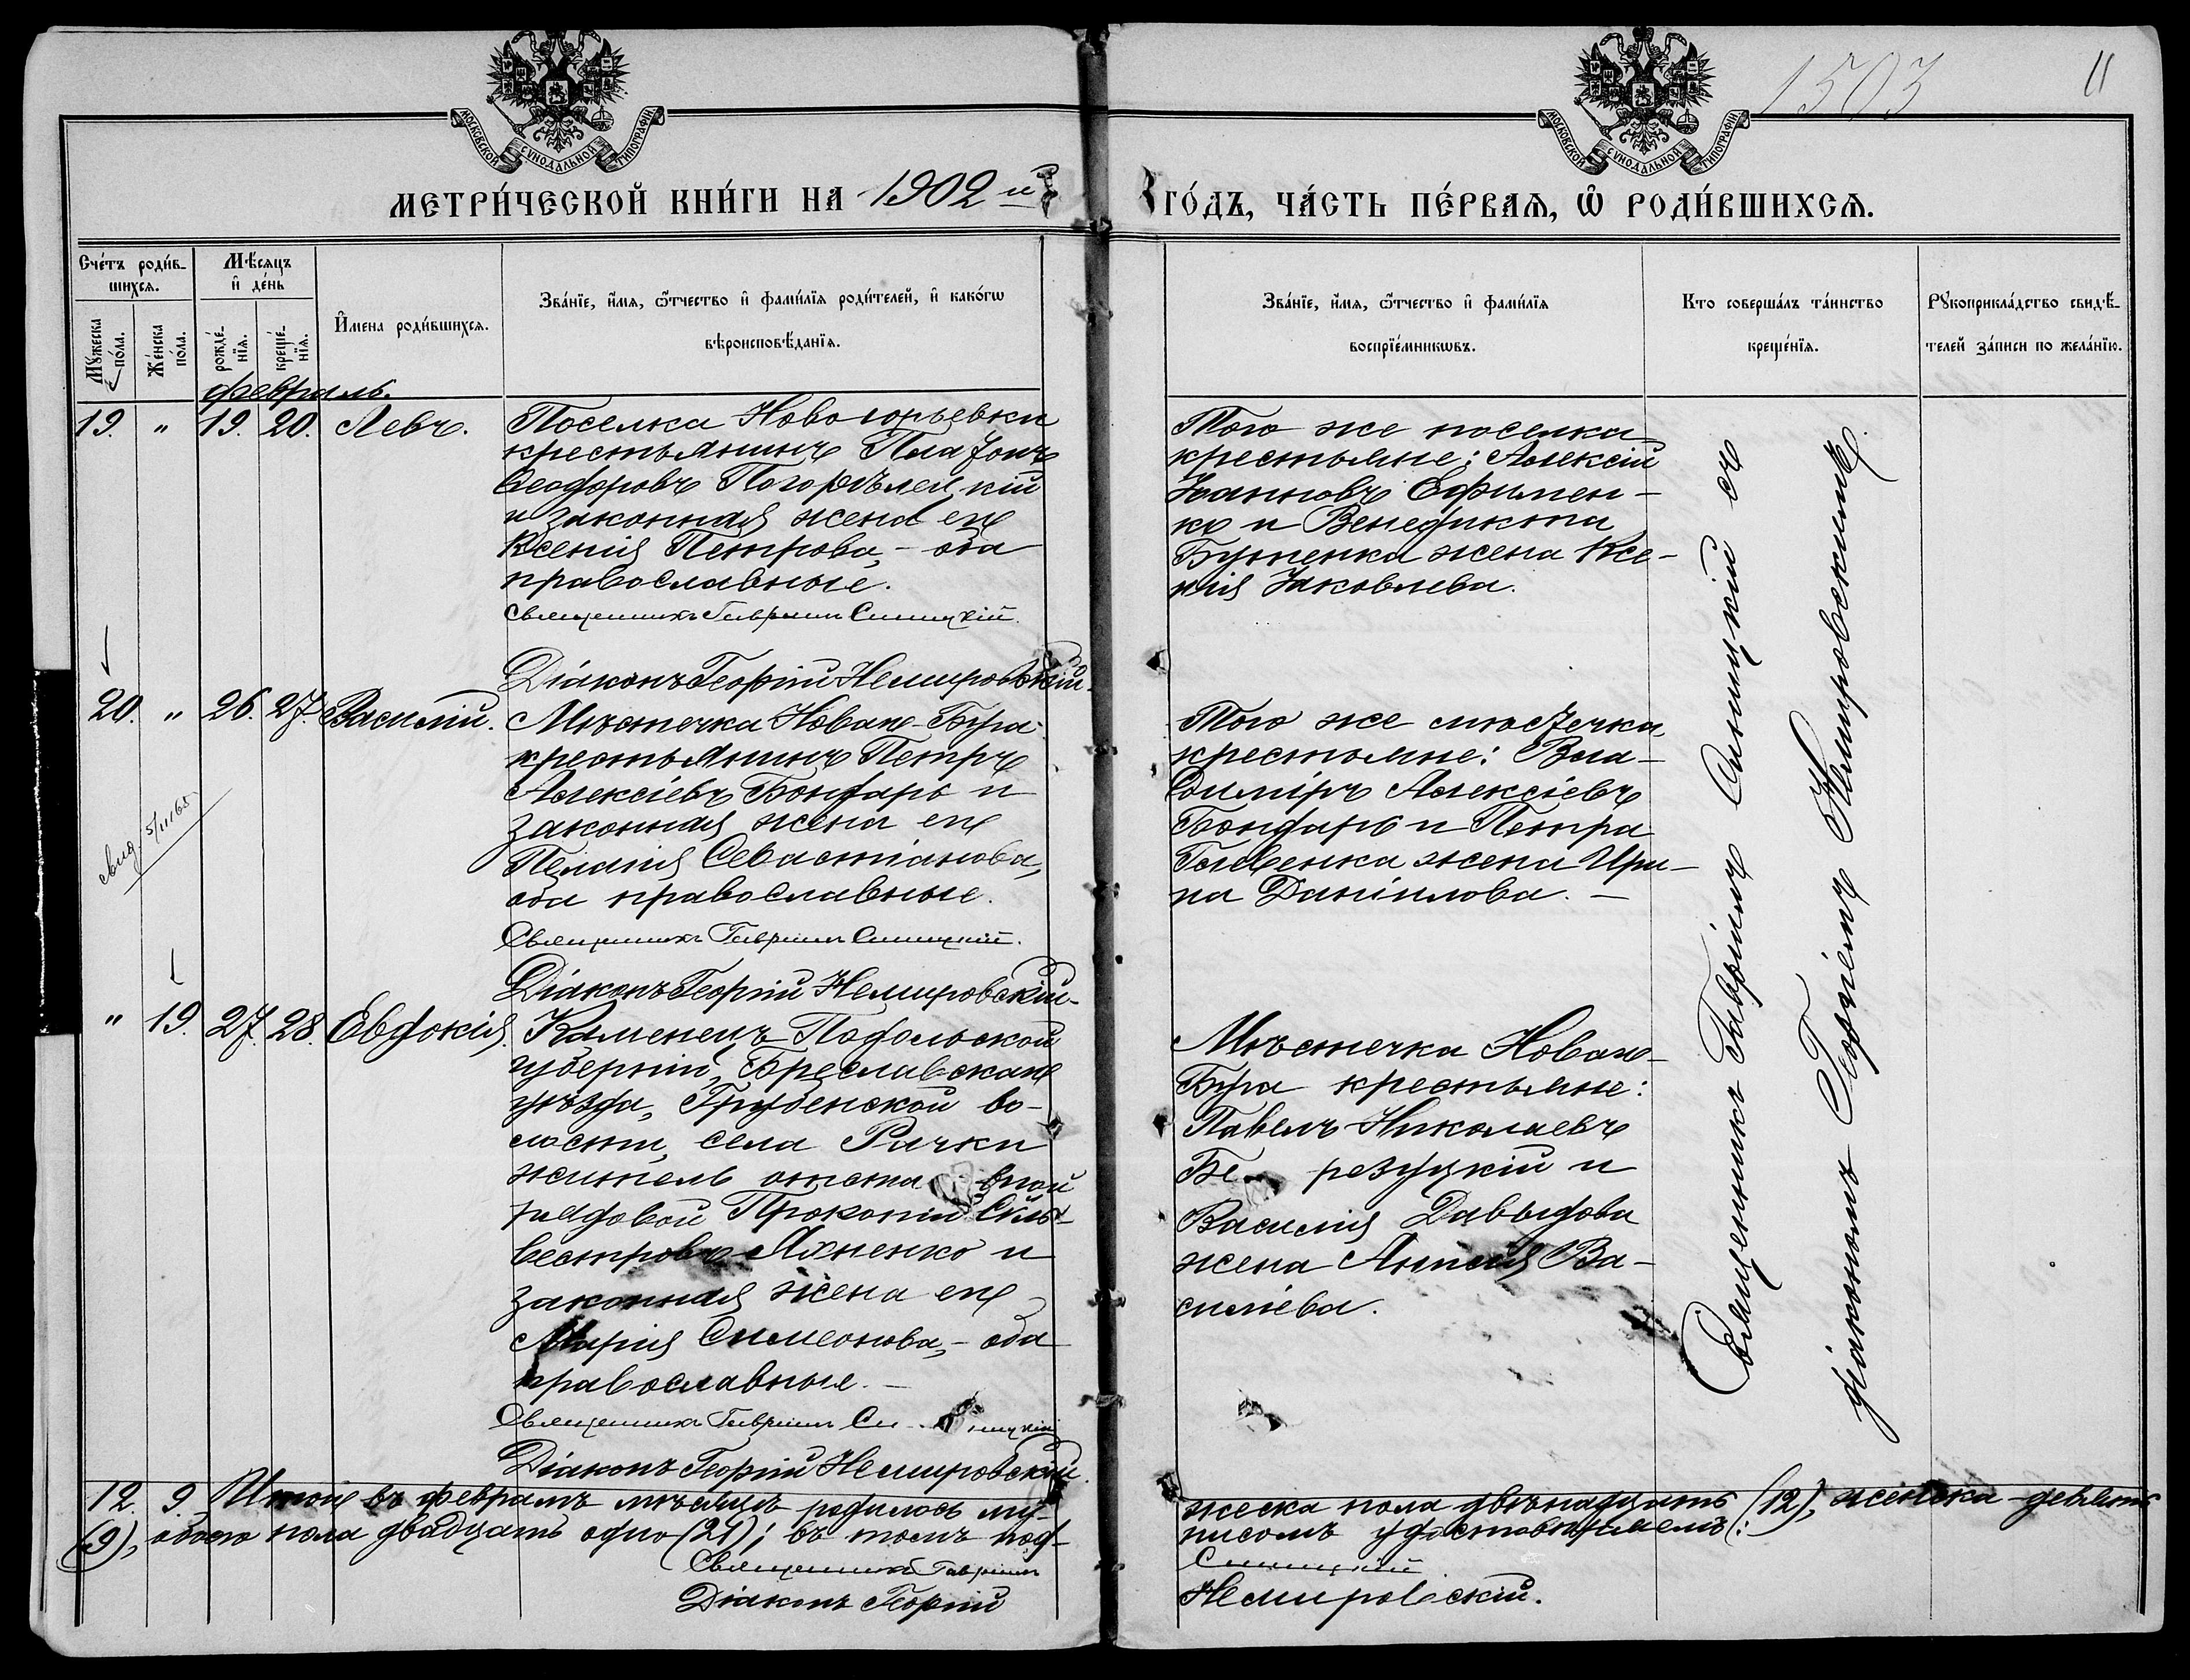 1503
11
МОСКОВСКОЙ СѴНОДАЛЬНОЙ ТИПОГРАФІИ
МОСКОВСКОЙ СѴНОДАЛЬНОЙ ТИПОГРАФІИ
МЕТРИ́ЧЕСКОЙ КНИ́ГИ НА 1902 й ГО́ДЪ, ЧА́СТЬ ПЕ́РВАѦ, Ѡ҆ РОДИ́ВШИХСѦ.
Сче́тъ роди́в-
шихсѧ.
Мꙋ́жеска по́ла.
Же́нска по́ла.
Мѣ́сѧцъ
и҆ де́нь
рожде́-
нїѧ.
креще́-
нїѧ.
И҆мена роди́вшихсѧ.
Зва́нїе, и҆́мѧ, ѻ҆́тчество и҆ фами́лїѧ роди́телей, и҆ како́гѡ
вѣроисповѣ́данїѧ.
Зва́нїе, и҆́мѧ, ѻ҆́тчество и҆ фами́лїѧ
воспрїе́мникѡвъ.
Кто соверша́лъ та́инство
креще́нїѧ.
Рꙋкоприкла́дство свидѣ́-
телей за́писи по жела́нїю.
Февраль.
19. " 19. 20. Левъ.
Поселка Новогорьевки
крестьянинъ Платонъ
Ѳеодоровъ Погорѣлецкій
и законная жена его
Ксенія Петрова, - оба
православные.
Священникъ Гавріилъ Синицкій.
Діаконъ Георгій Немировскій.
Того же поселка
крестьяне: Алексій
Іоанновъ Ефимен-
ко и Венедикта
жена Ксе-
нія Іаковлева.
20. " 26. 27. Василій.
Мѣстечка Новаго-Буга
крестьянинъ Петръ
Алексіевъ Бондарь и
законная жена его
Пелагія Севастіанова,
оба православные.
Священникъ Гавріилъ Синицкій.
Діаконъ Георгій Немировскій.
свид 5/II 65
Того же мѣстечка
крестьяне: Вла-
диміръ Алексіевъ
Бондарь и Петра
жена Ири-
на Даніилова. -
" 19. 27. 28. Евдокія.
Каменецъ Подольской
губерніи, Бреславскаго
уѣзда, волости, села
житель отставной
рядовой Прокопій Сильвестровъ и
законная жена его
Марія Симеонова, - оба
православные. -
Священникъ Гавріилъ Синицкій
Діаконъ Георгій Немировскій.
Мѣстечка Новаго-
Буга крестьяне:
Павелъ Николаевъ
Березуцкій и
Василія Давыдова
жена Анисія Ва-
силіева.
Священникъ Гавріилъ Синицкій съ
діакономъ Георгіемъ Немировскимъ.
12. 9. Итого въ февралѣ мѣсяцѣ родилось му-
жеска пола двѣнадцать (12), женска - девять
(9), обоего пола двадцать одно (21); въ томъ под-
писомъ удостовѣряемъ:
Священникъ Гавріилъ Синицкій
Діаконъ Георгій Немировскій.